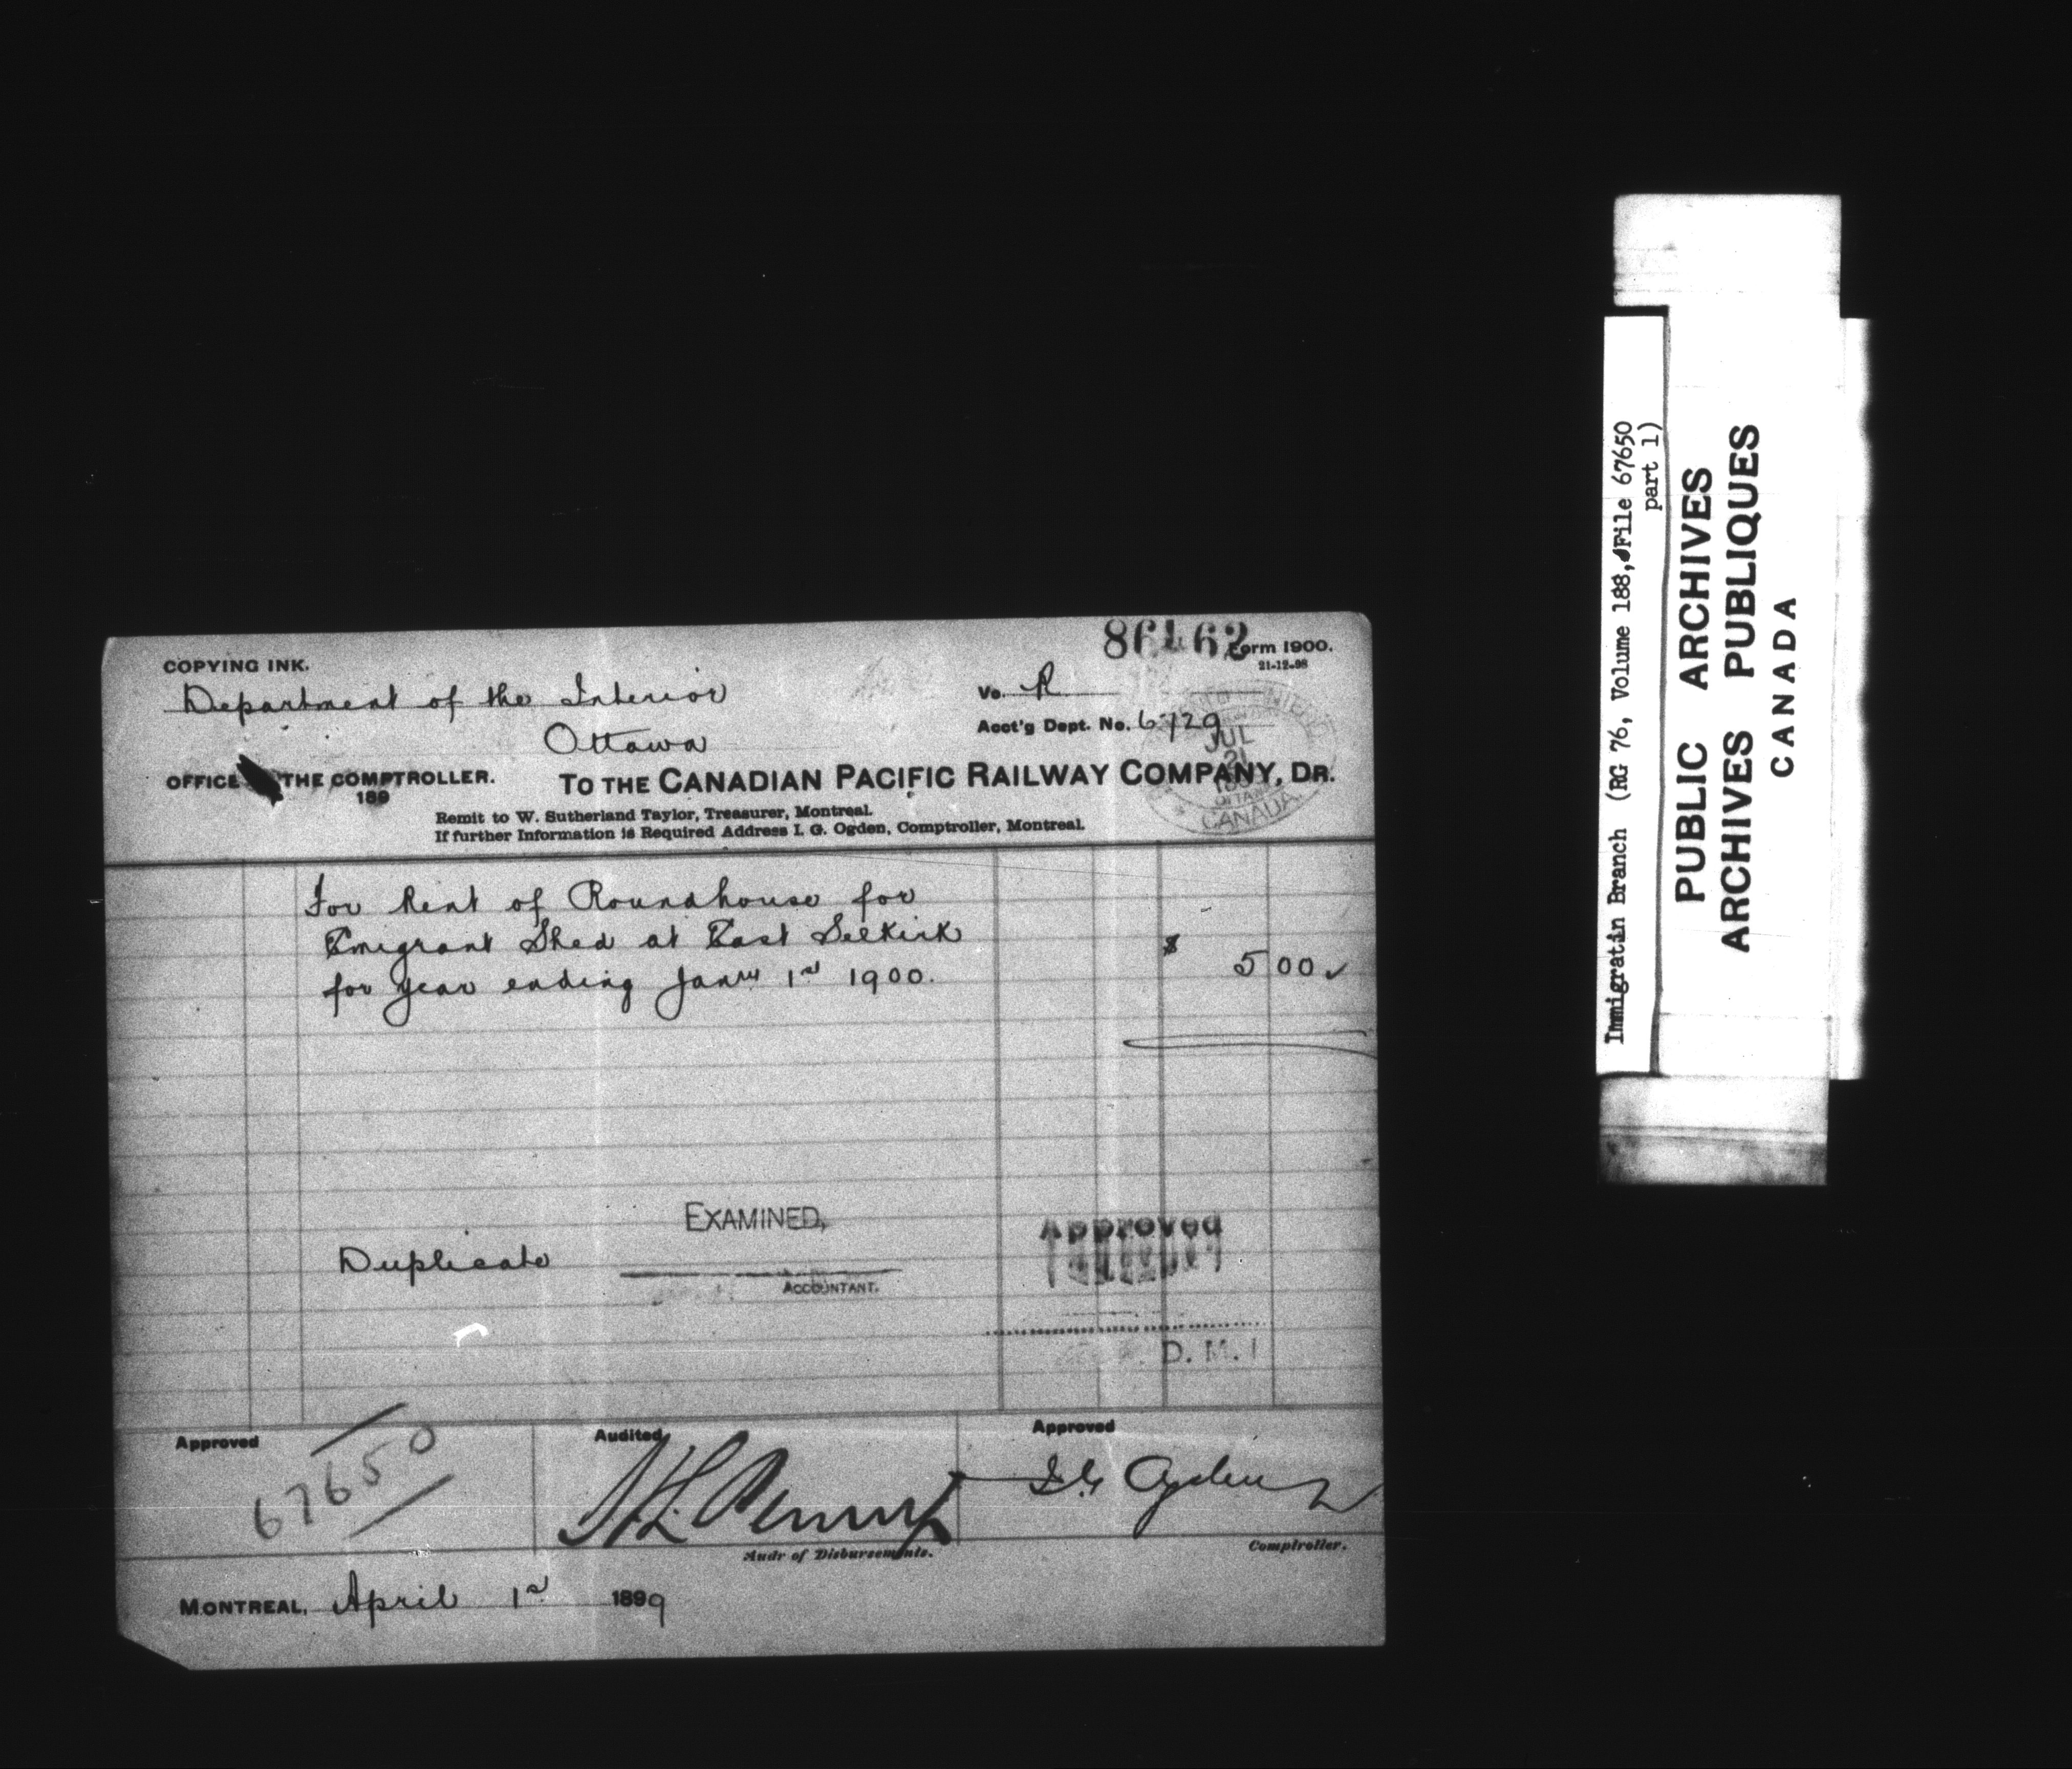 86462
Form 1900.
21-12-98
COPYING INK.
Department of the Interior
Ottawa
Vo. R
Acct'g Dept. No. 6729
JUL
21
OTTAWA
CANADA
OFFICE THE COMPTROLLER.
189
TO THE CANADIAN PACIFIC RAILWAY COMPANY, DR.
Remit to W. Sutherland Taylor, Treasurer, Montreal.
If further Information is Required Address I. G. Ogden, Comptroller, Montreal.
For Rent of Roundhouse for
Emigrant Shed at East Selkirk
for year ending Jany 1st 1900.
$ 5 00 ✓
EXAMINED,
Duplicate
ACCOUNTANT.
Approved
D. M. I
Approved
67650
Audited
Audr of Disbursements.
Approved
I. G. Ogden
Comptroller.
MONTREAL, April 1st 1899
Immigratin Branch (RG 76, Volume 188, File 67650
part 1)
PUBLIC ARCHIVES
ARCHIVES PUBLIQUES
CANADA